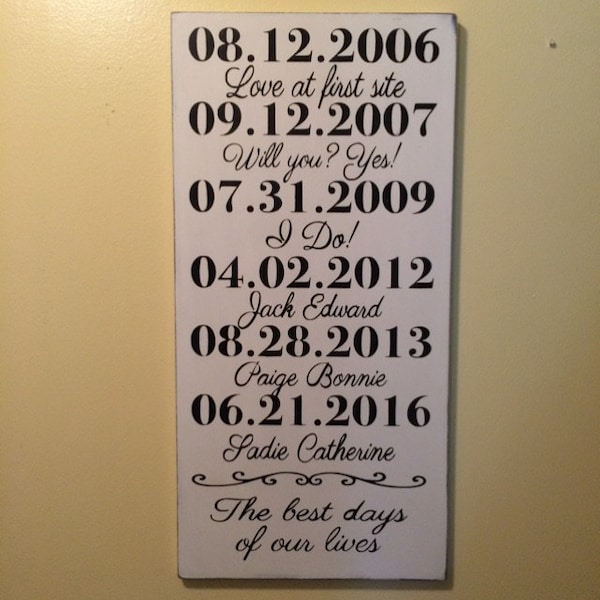 08.12.2006
Love at first site
09.12.2007
Will you? Yes!
07.31.2009
I Do!
04.02.2012
Jack Edward
08.28.2013
Paige Bonnie
06.21.2016
Sadie Catherine
The best days
of our lives